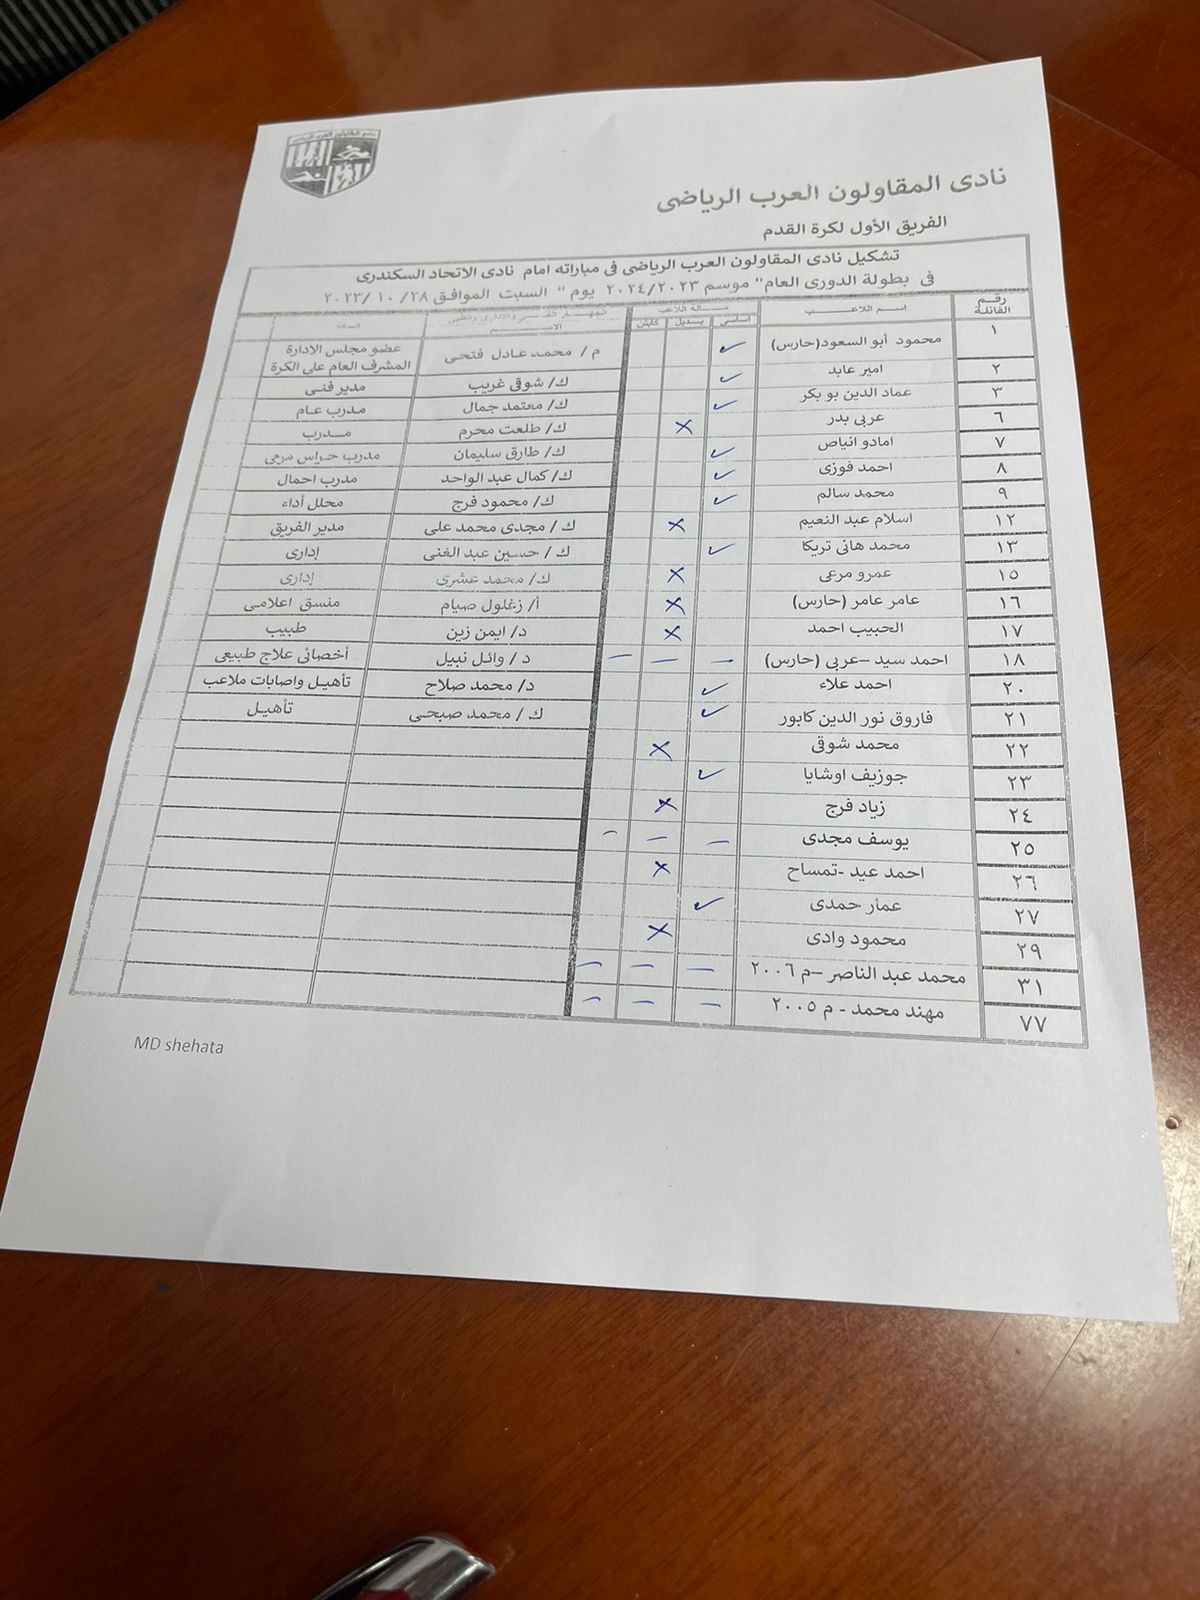 نادى المقاولون العرب الرياضى
نادى المقاولون العرب الرياضى
الفريق الأول لكرة القدم
تشكيل نادى المقاولون العرب الرياضى فى مباراته امام نادى الاتحاد السكندرى
فى بطولة الدورى العام" موسم ٢٠٢٤/٢٠٢٣ يوم " السبت الموافق ٢٨/ ١٠ /٢٠٢٣
رقم الفانلة اسم اللاعب حالة اللاعب الجهاز الفنى والادارى والطبى
اساسى بديل كابتن الاسم
١ محمود أبو السعود(حارس) ✓ م / محمد عادل فتحى عضو مجلس الادارة المشرف العام على الكرة
٢ امير عابد ✓ ك/ شوقى غريب مدير فنى
٣ عماد الدين بو بكر ✓ ك/ معتمد جمال مدرب عام
٦ عربى بدر × ك/ طلعت محرم مدرب
٧ امادو انياص ✓ ك/ طارق سليمان مدرب حراس مرمى
٨ احمد فوزى ✓ ك/ كمال عبد الواحد مدرب احمال
٩ محمد سالم ✓ ك/ محمود فرج محلل أداء
١٢ اسلام عبد النعيم × ك / مجدى محمد على مدير الفريق
١٣ محمد هانى تريكا ✓ ك / حسين عبد الغنى إدارى
١٥ عمرو مرعى × ك/ محمد عشرى إدارى
١٦ عامر عامر (حارس) × أ/ زغلول صيام منسق اعلامى
١٧ الحبيب احمد × د/ ايمن زين طبيب
١٨ احمد سيد –عربى (حارس) – – – د / وائل نبيل أخصائى علاج طبيعى
٢٠ احمد علاء ✓ د/ محمد صلاح تأهيل واصابات ملاعب
٢١ فاروق نور الدين كابور ✓ ك / محمد صبحى تأهيل
٢٢ محمد شوقى ×
٢٣ جوزيف اوشايا ✓
٢٤ زياد فرج ×
٢٥ يوسف مجدى – – –
٢٦ احمد عيد -تمساح ×
٢٧ عمار حمدى ✓
٢٩ محمود وادى ×
٣١ محمد عبد الناصر –م ٢٠٠٦ – – –
٧٧ مهند محمد - م ٢٠٠٥ – – –
MD shehata